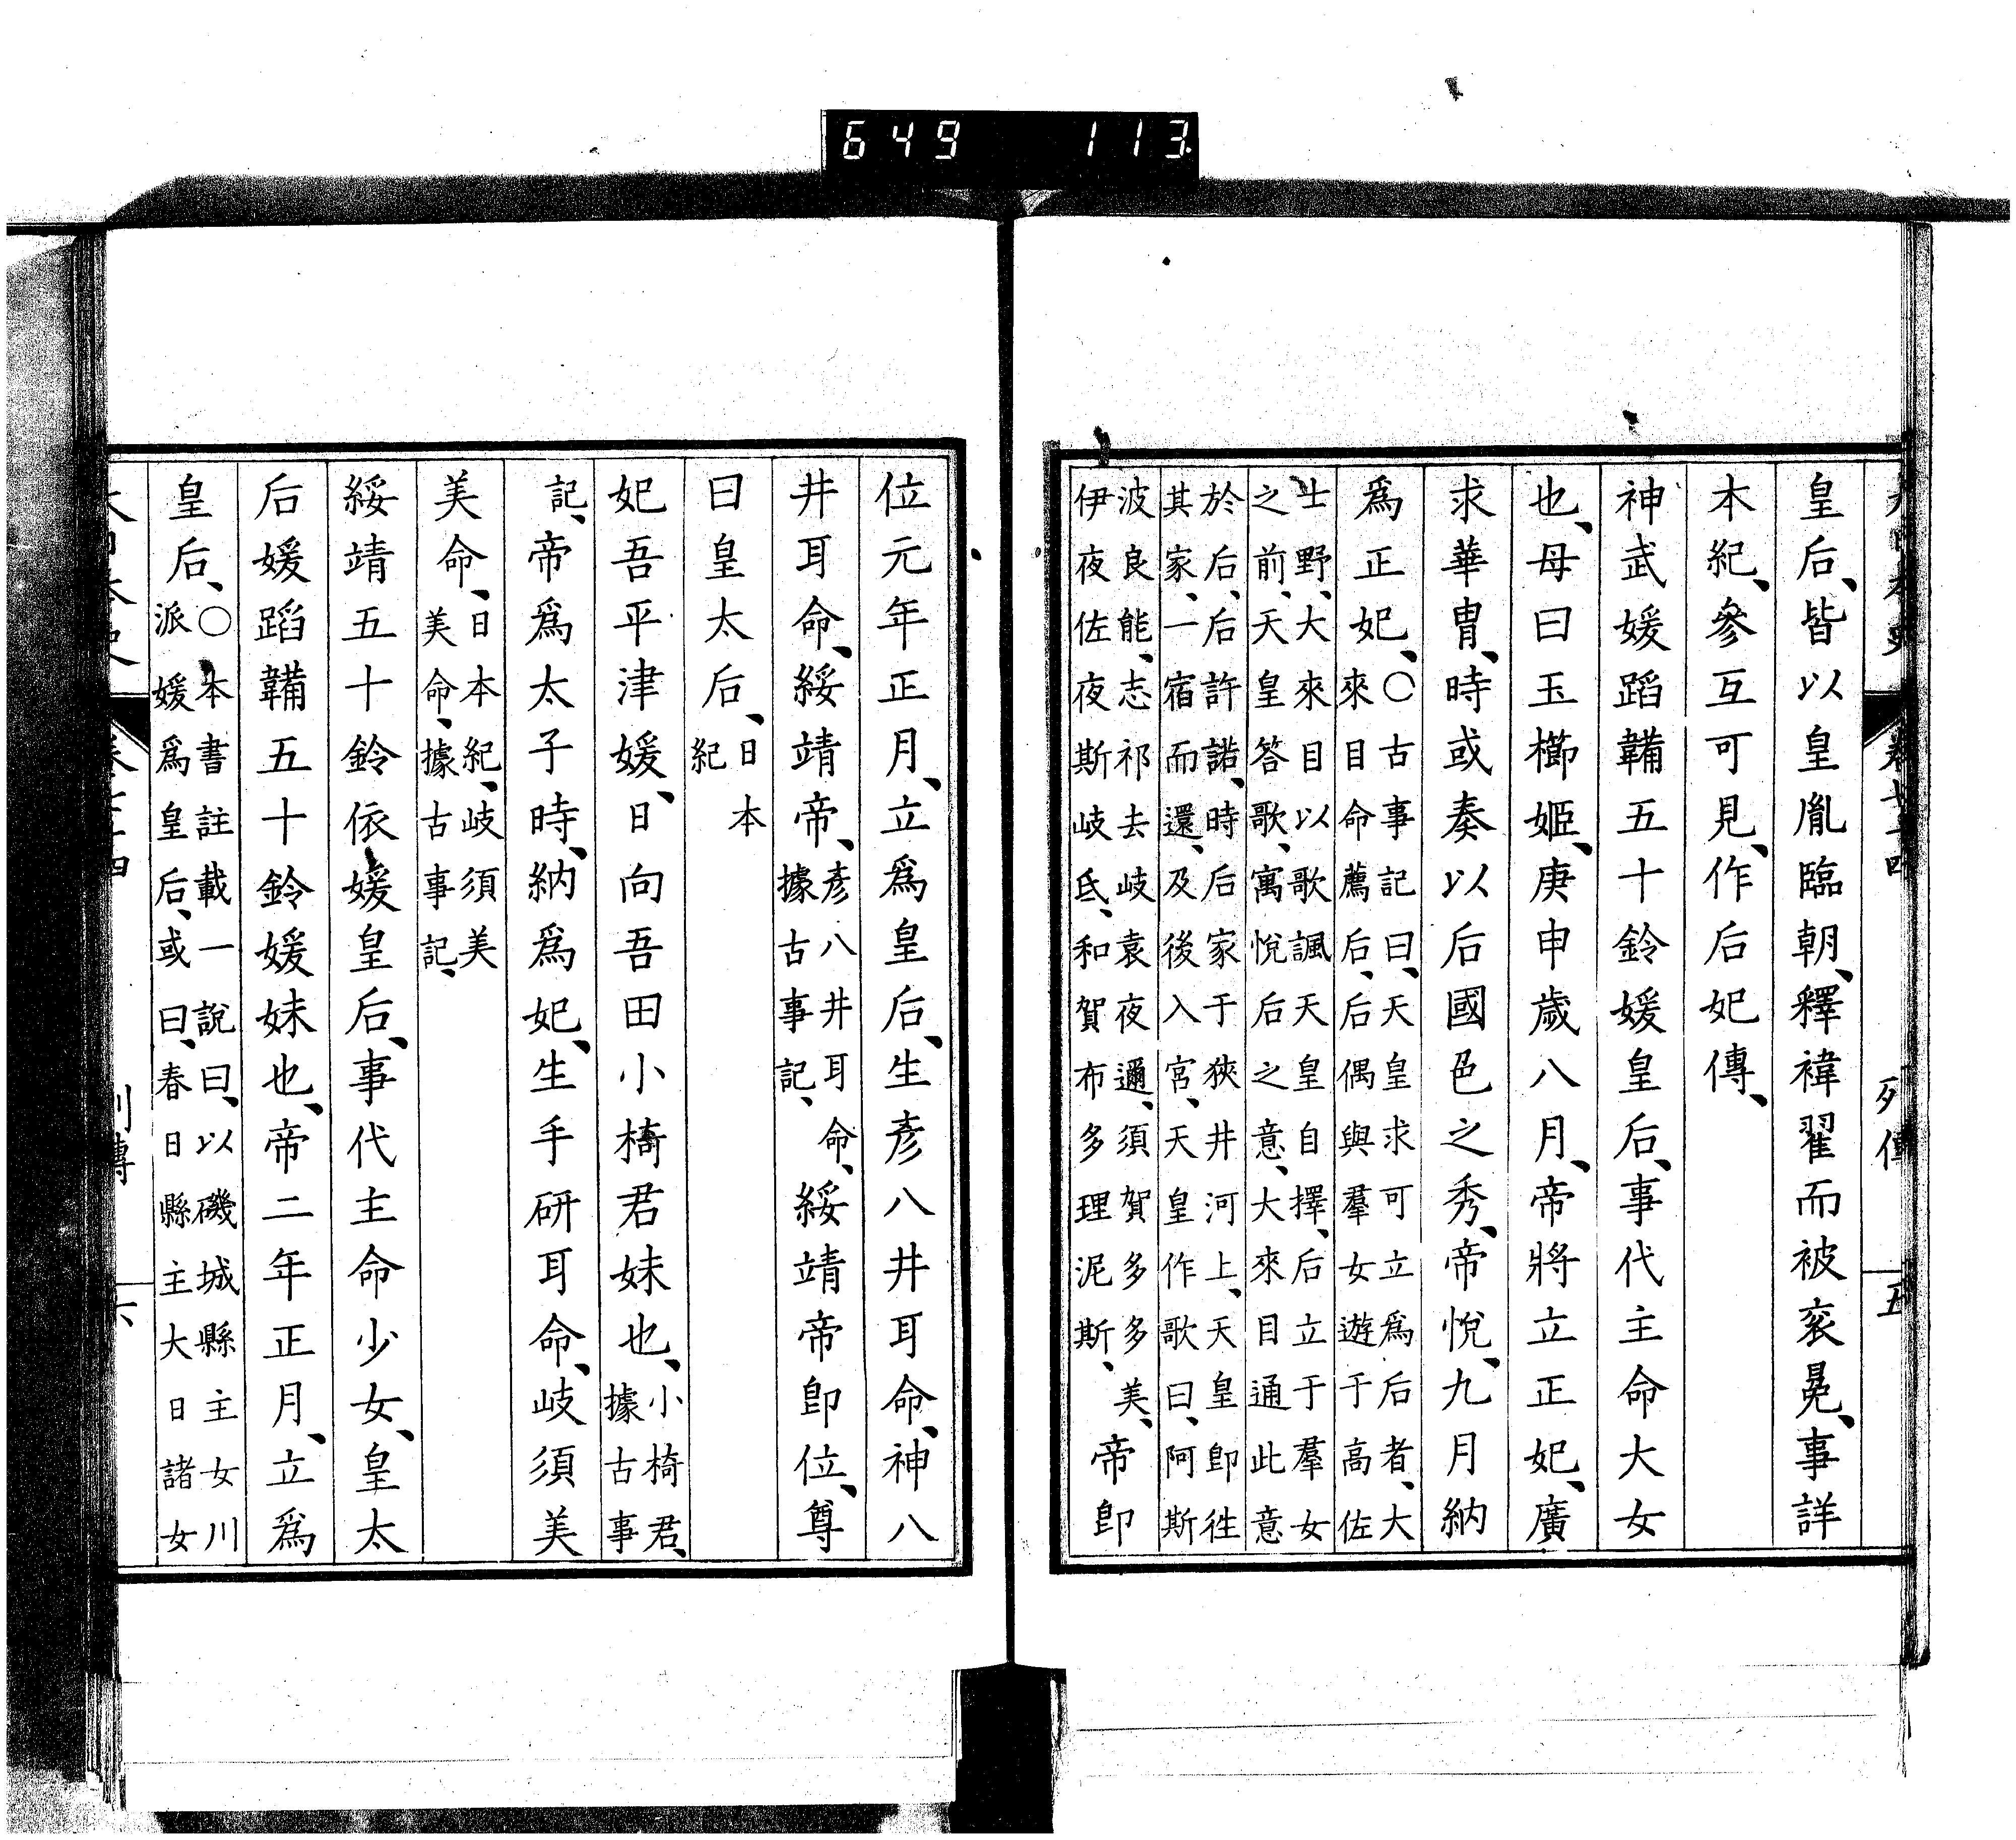 649 113
皇后、皆以皇胤臨朝、釋褘翟而被衮冕、事詳
本紀、參互可見、作后妃傳、
神武媛蹈韛五十鈴媛皇后、事代主命大女
也、母曰玉櫛姬、庚申歲八月、帝將立正妃、廣
求華冑、時或奏以后國色之秀、帝悅、九月納
爲正妃、
〇古事記曰、天皇求可立爲后者、大
來目命薦后、后偶與羣女遊于高佐
士野、大來目以歌諷天皇自擇、后立于羣女
之前、天皇答歌、寓悅后之意、大來目通此意
於后、后許諾、時后家于狹井河上、天皇卽徃
其家、一宿而還、及後入宮、天皇作歌曰、阿斯
波良能、志祁去岐袁夜邇、須賀多多美、
伊夜佐夜斯岐氐、和賀布多理泥斯、
帝卽
位元年正月、立爲皇后、生彥八井耳命、神八
井耳命、綏靖帝、
彥八井耳命、
據古事記、
綏靖帝卽位、尊
曰皇太后、
日本
紀
妃吾平津媛、日向吾田小椅君妹也、
小椅君、
據古事
記、
帝爲太子時、納爲妃、生手研耳命、岐須美
美命、
日本紀、岐須美
美命、據古事記、
綏靖五十鈴依媛皇后、事代主命少女、皇太
后媛蹈韛五十鈴媛妹也、帝二年正月、立爲
皇后、
〇本書註載一說曰、以磯城縣主女川
派媛爲皇后、或曰、春日縣主大日諸女
列傳
六